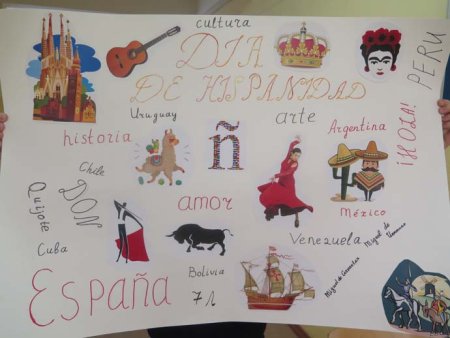 cultura
DIA
DE HISPANIDAD
PERU
Uruguay
arte
ñ
Argentina
¡HOLA!
historia
Chile
DON
Quijote
amor
México
Cuba
Venezuela
Miguel de Cervantes
Miguel de
España
Bolivia